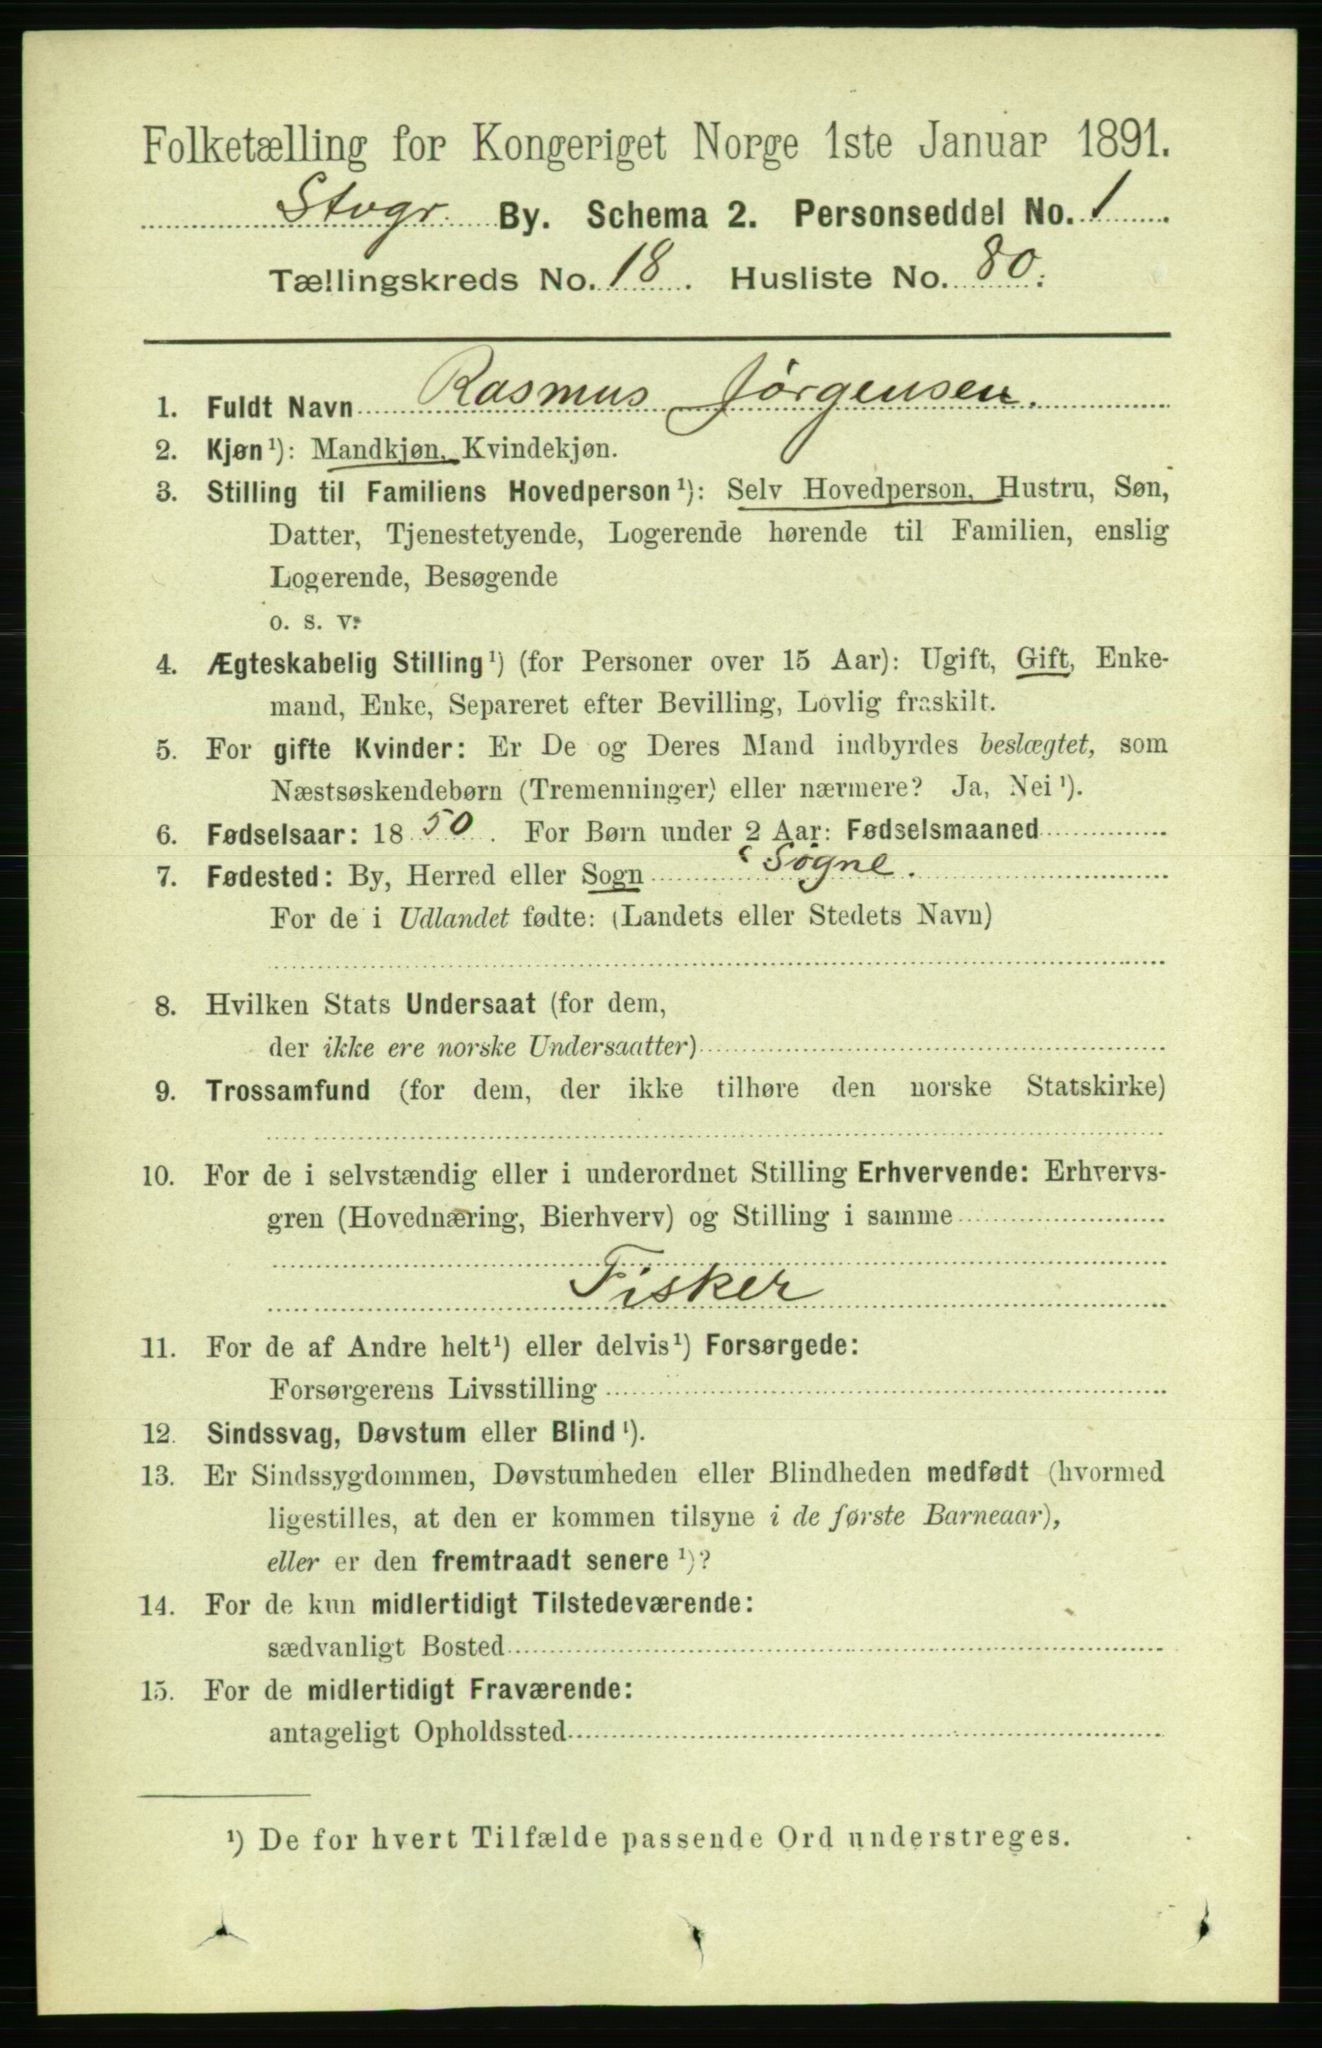 Folketælling for Kongeriget Norge 1ste Januar 1891.
Stvgr. By. Schema 2. Personseddel No. 1
Tællingskreds No. 18. Husliste No. 80.
1. Fuldt Navn Rasmus Jørgensen.
2. Kjøn¹): Mandkjøn, Kvindekjøn.
3. Stilling til Familiens Hovedperson¹): Selv Hovedperson, Hustru, Søn,
Datter, Tjenestetyende, Logerende hørende til Familien, enslig
Logerende, Besøgende
o. s. v.
4. Ægteskabelig Stilling¹) (for Personer over 15 Aar): Ugift, Gift, Enke-
mand, Enke, Separeret efter Bevilling, Lovlig fraskilt.
5. For gifte Kvinder: Er De og Deres Mand indbyrdes beslægtet, som
Næstsøskendebørn (Tremenninger) eller nærmere? Ja, Nei¹).
6. Fødselsaar: 1850. For Børn under 2 Aar: Fødselsmaaned
7. Fødested: By, Herred eller Sogn Sogne.
For de i Udlandet fødte: (Landets eller Stedets Navn)
8. Hvilken Stats Undersaat (for dem,
der ikke ere norske Undersaatter)
9. Trossamfund (for dem, der ikke tilhøre den norske Statskirke)
10. For de i selvstændig eller i underordnet Stilling Erhvervende: Erhvervs-
gren (Hovednæring, Bierhverv) og Stilling i samme
Fisker
11. For de af Andre helt¹) eller delvis¹) Forsørgede:
Forsørgerens Livsstilling
12. Sindssvag, Døvstum eller Blind¹).
13. Er Sindssygdommen, Døvstumheden eller Blindheden medfødt (hvormed
ligestilles, at den er kommen tilsyne i de første Barneaar),
eller er den fremtraadt senere¹)?
14. For de kun midlertidigt Tilstedeværende:
sædvanligt Bosted
15. For de midlertidigt Fraværende:
antageligt Opholdssted
¹) De for hvert Tilfælde passende Ord understreges.